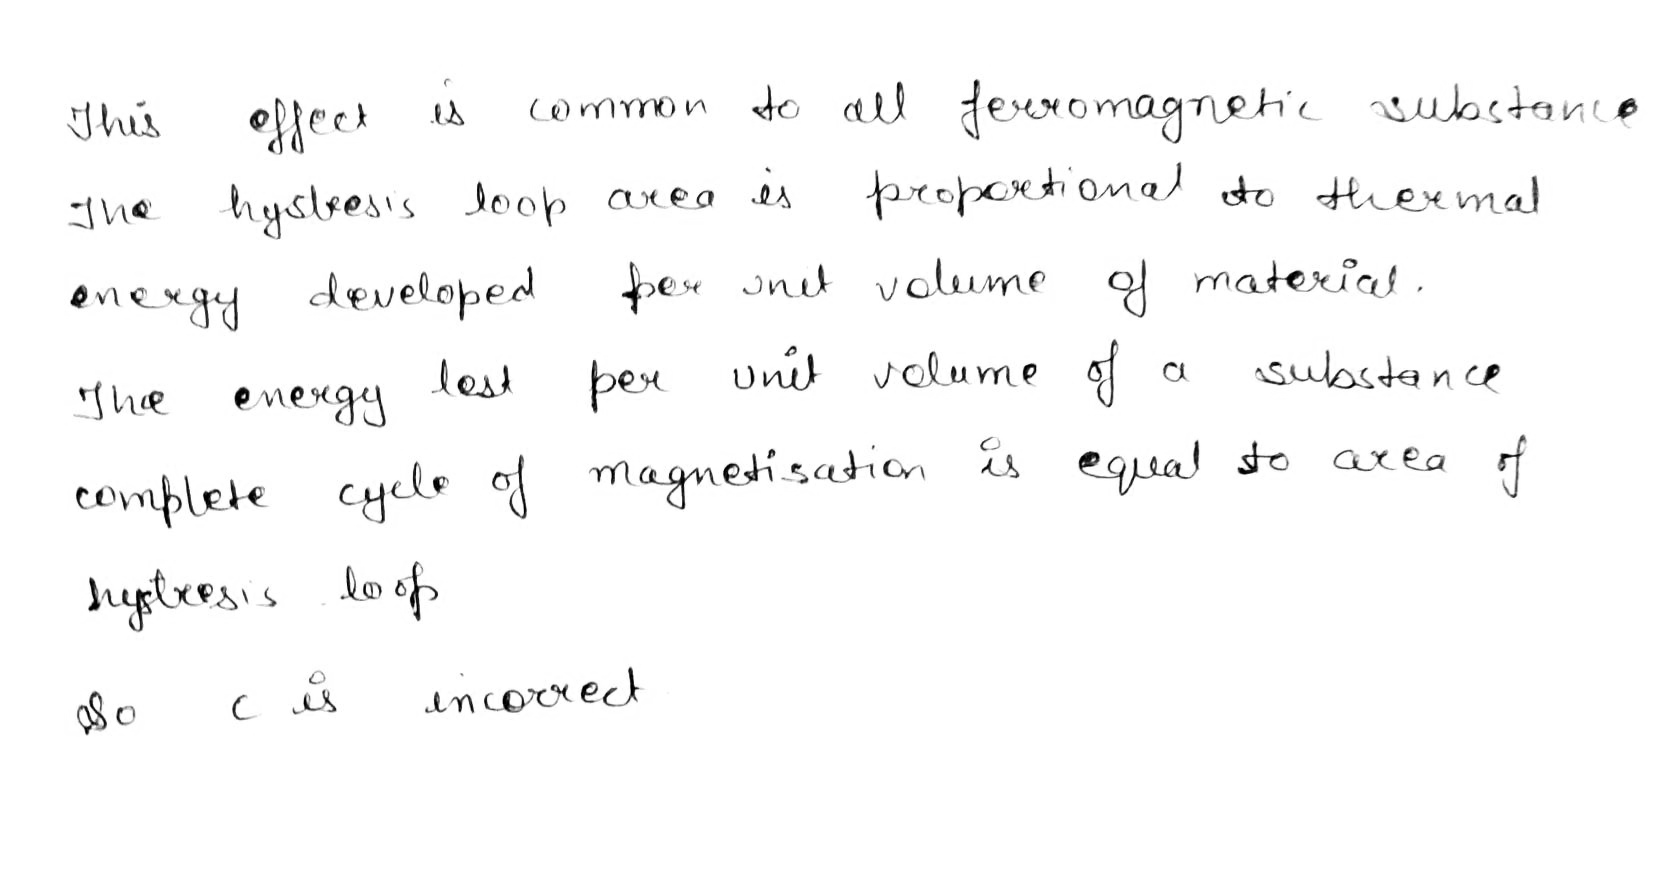 This effect is common to all ferromagnetic substance
The hystresis loop area is proportional to thermal
energy developed per unit volume of material.
The energy lost per unit volume of a substance
complete cycle of magnetisation is equal to area of
hystresis loop
so c is incorrect